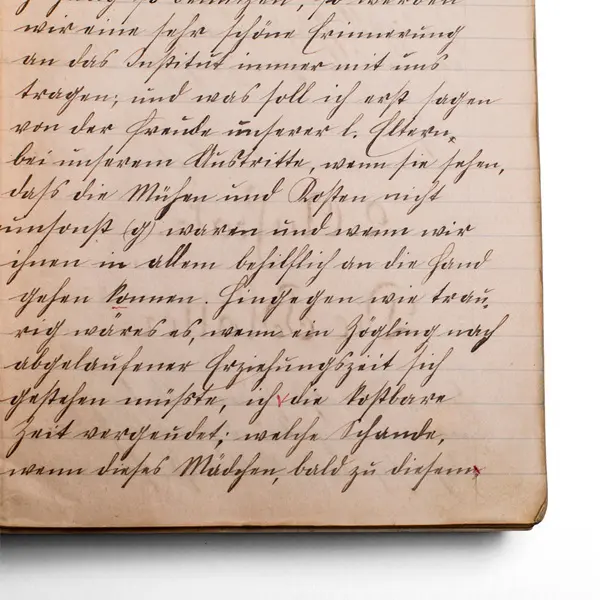 so benutzen, so werden
wir eine sehr schöne Erinnerung
an das Institut immer mit uns
tragen; und was soll ich erst sagen
von der Freude unserer l. Eltern,
bei unserem Austritte, wenn sie sehen,
daß die Mühen und Kosten nicht
umsonst (g) waren und wenn wir
ihnen in allem behilflich an die Hand
gehen konnen. Hingegen wie trau,
rig wäres es, wenn ein Zögling nach
abgelaufener Erziehungszeit sich
gestehen müßte, ich die kostbare
Zeit vergeudet; welche Schande,
wenn dieses Mädchen, bald zu diesem